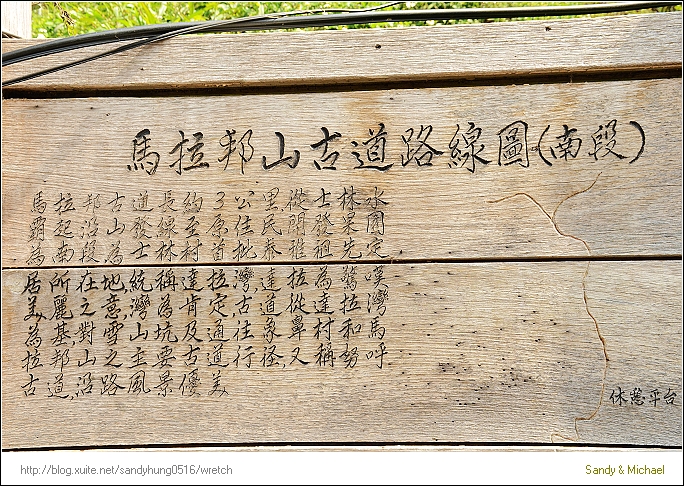 馬拉邦山古道路線圖(南段)
馬拉邦古道長約3公里從士林水
霸起沿山發線至原佳民開發果園
為南段為士林村首批泰雅祖先定
居所在地,統稱達拉灣,達拉為驚嘆
美麗之意,灣為肯定,古道從達拉灣
為基對雪山坑及通往象鼻村和馬
拉邦山之主要古道行徑,又稱努呼
古道,沿路風景優美
休憩平台
http://blog.xuite.net/sandyhung0516/wretch
Sandy & Michael